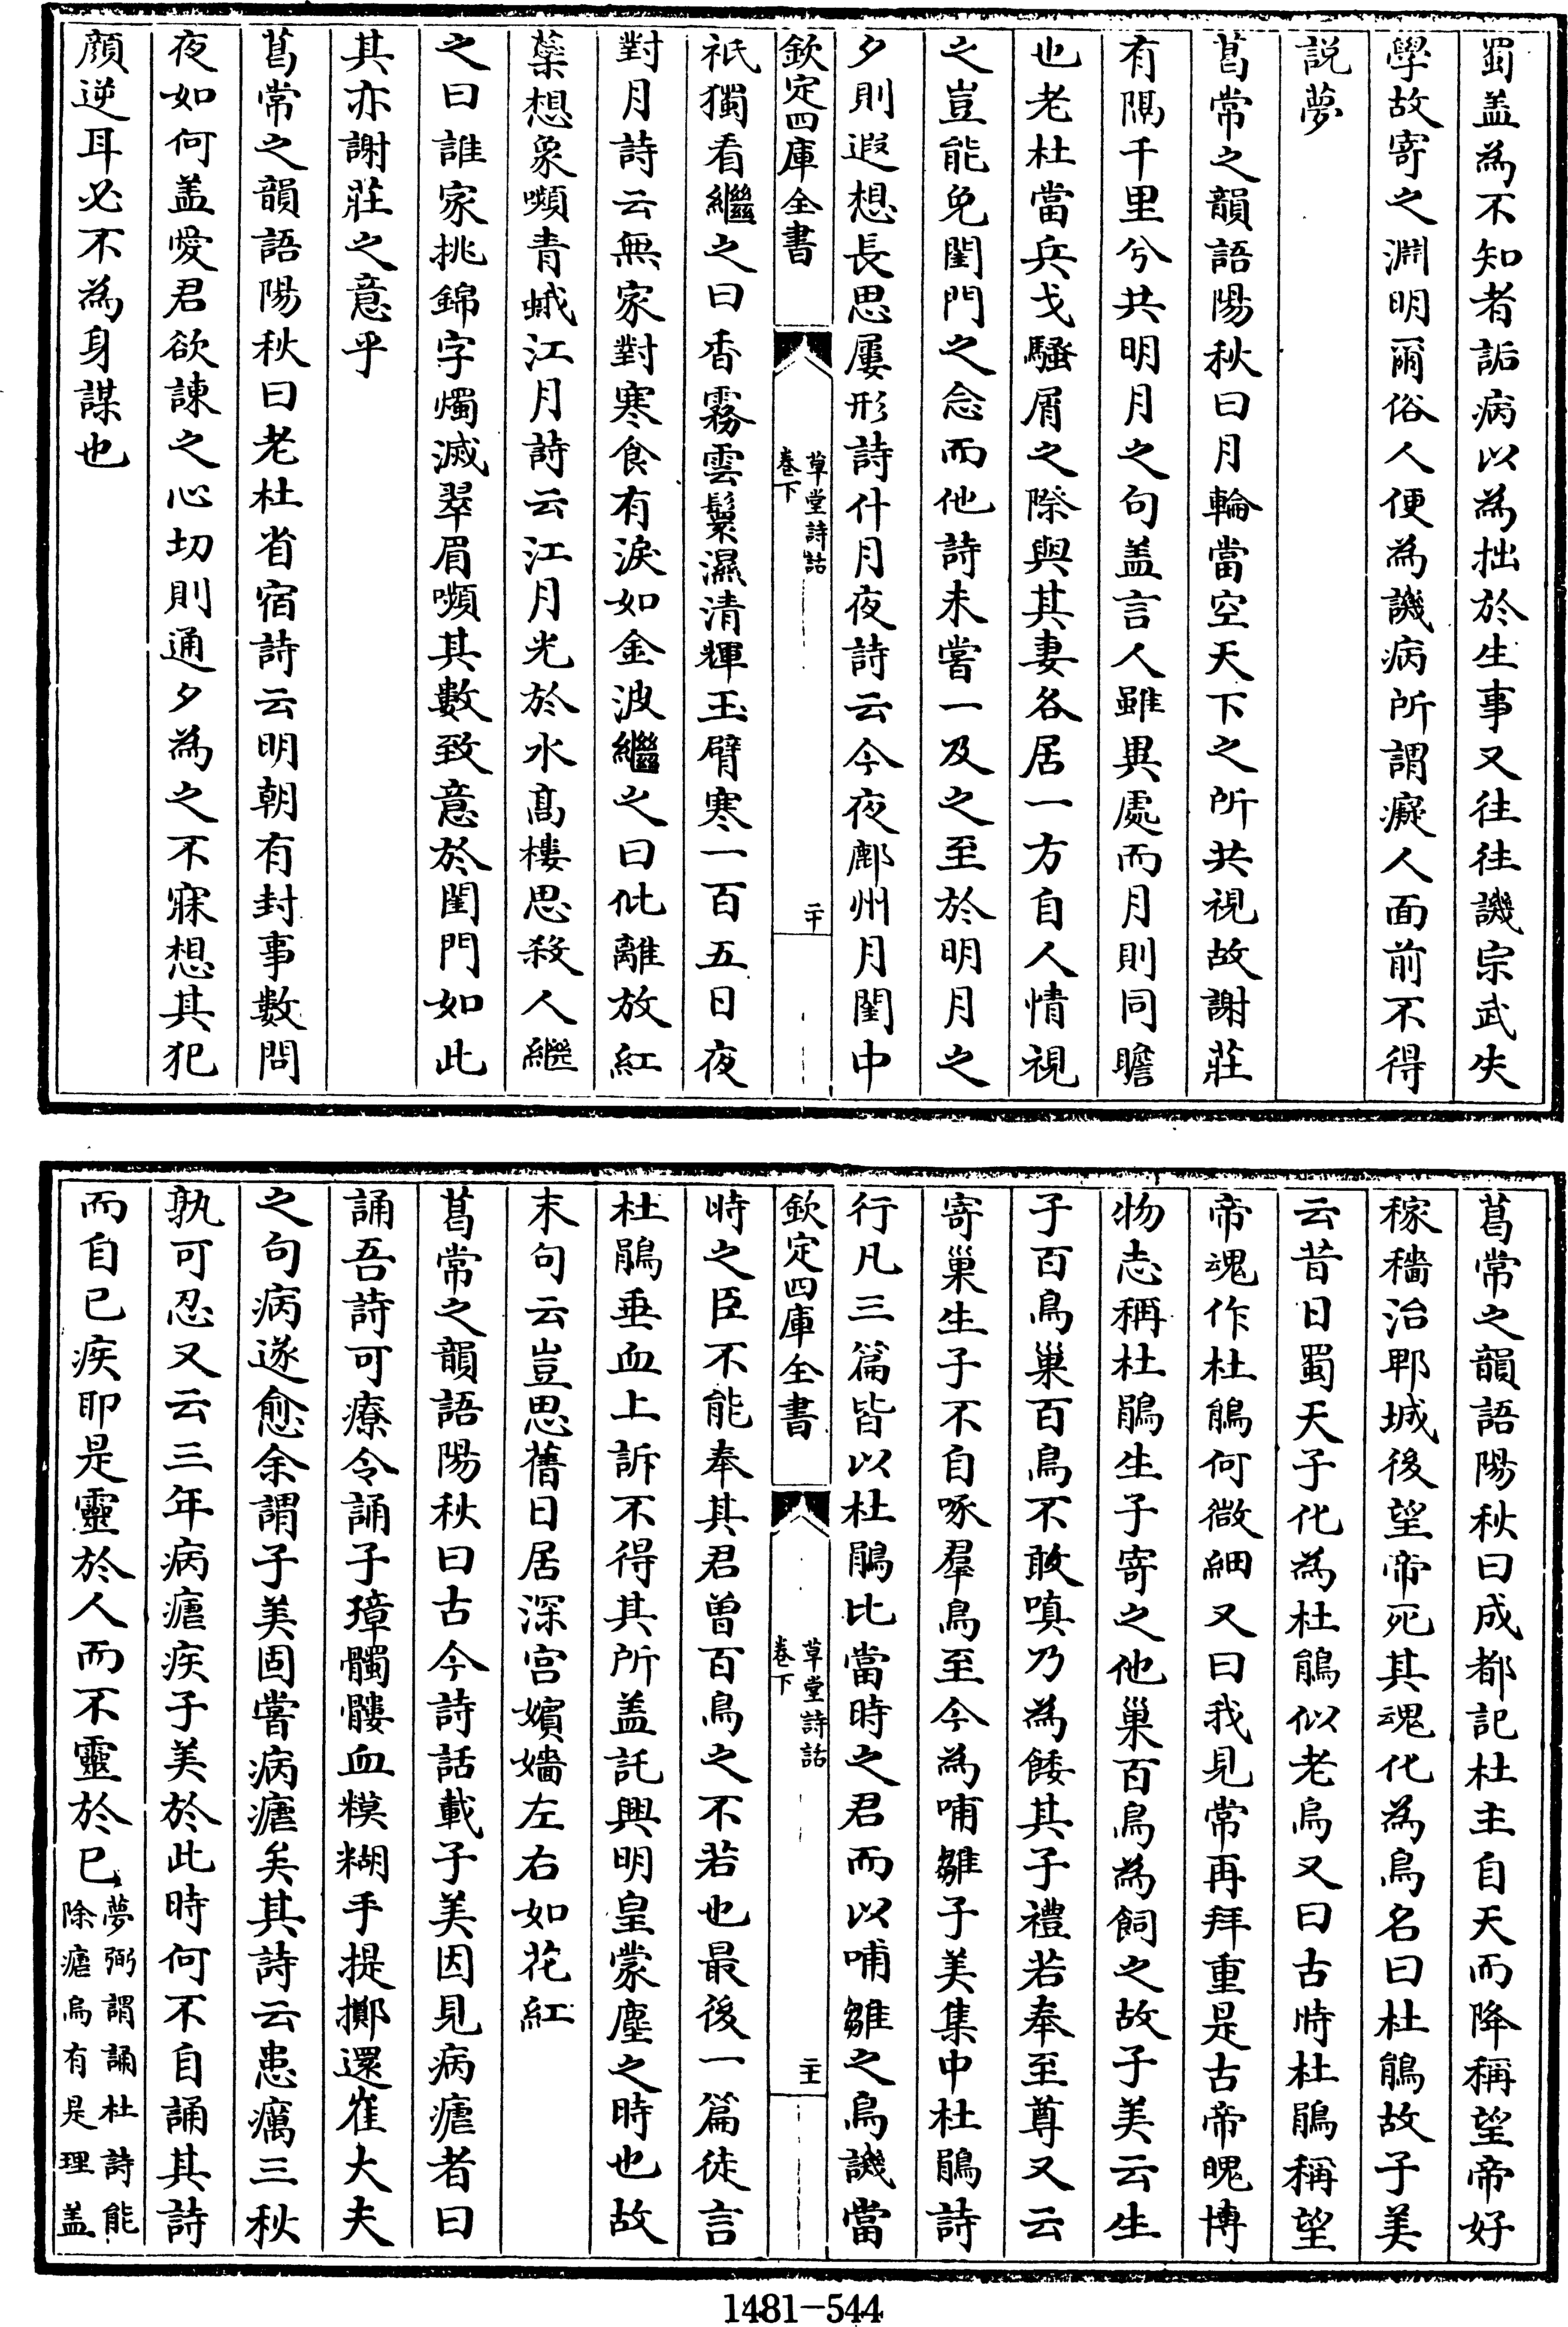 蜀盖為不知者詬病以為拙於生事又往往譏宗武失
學故寄之淵明爾俗人便為譏病所謂癡人面前不得
説夢
葛常之韻語陽秋曰月輪當空天下之所共視故謝莊
有隔千里兮共明月之句盖言人雖異處而月則同瞻
也老杜當兵戈騷屑之際與其妻各居一方自人情視
之豈能免閨門之念而他詩未嘗一及之至於明月之
夕則遐想長思屢形詩什月夜詩云今夜鄜州月閨中
欽定四庫全書
草堂詩話
卷下
二十
祇獨看繼之曰香霧雲鬟濕清輝玉臂寒一百五日夜
對月詩云無家對寒食有淚如金波繼之曰仳離放紅
蘂想象嚬青蛾江月詩云江月光於水髙樓思殺人繼
之曰誰家挑錦字燭滅翠眉嚬其數致意於閨門如此
其亦謝莊之意乎
葛常之韻語陽秋曰老杜省宿詩云明朝有封事數問
夜如何盖愛君欲諫之心切則通夕為之不寐想其犯
顔逆耳必不為身謀也
葛常之韻語陽秋曰成都記杜主自天而降稱望帝好
稼穡治郫城後望帝死其魂化為鳥名曰杜鵑故子美
云昔日蜀天子化為杜鵑似老烏又曰古時杜鵑稱望
帝魂作杜鵑何微細又曰我見常再拜重是古帝魄博
物志稱杜鵑生子寄之他巢百鳥為飼之故子美云生
子百鳥巢百鳥不敢嗔乃為餧其子禮若奉至尊又云
寄巢生子不自啄羣鳥至今為哺雛子美集中杜鵑詩
行凡三篇皆以杜鵑比當時之君而以哺雛之鳥譏當
欽定四庫全書
草堂詩話
卷下
二十一
時之臣不能奉其君曽百鳥之不若也最後一篇徒言
杜鵑垂血上訴不得其所盖託興明皇蒙塵之時也故
末句云豈思舊日居深宫嬪嬙左右如花紅
葛常之韻語陽秋曰古今詩話載子美因見病瘧者曰
誦吾詩可療令誦子璋髑髏血糢糊手提擲還崔大夫
之句病遂愈余謂子美固嘗病瘧矣其詩云患癘三秋
孰可忍又云三年病瘧疾子美於此時何不自誦其詩
而自已疾耶是靈於人而不靈於已夢弼謂誦杜詩能
除瘧烏有是理盖
1481-544